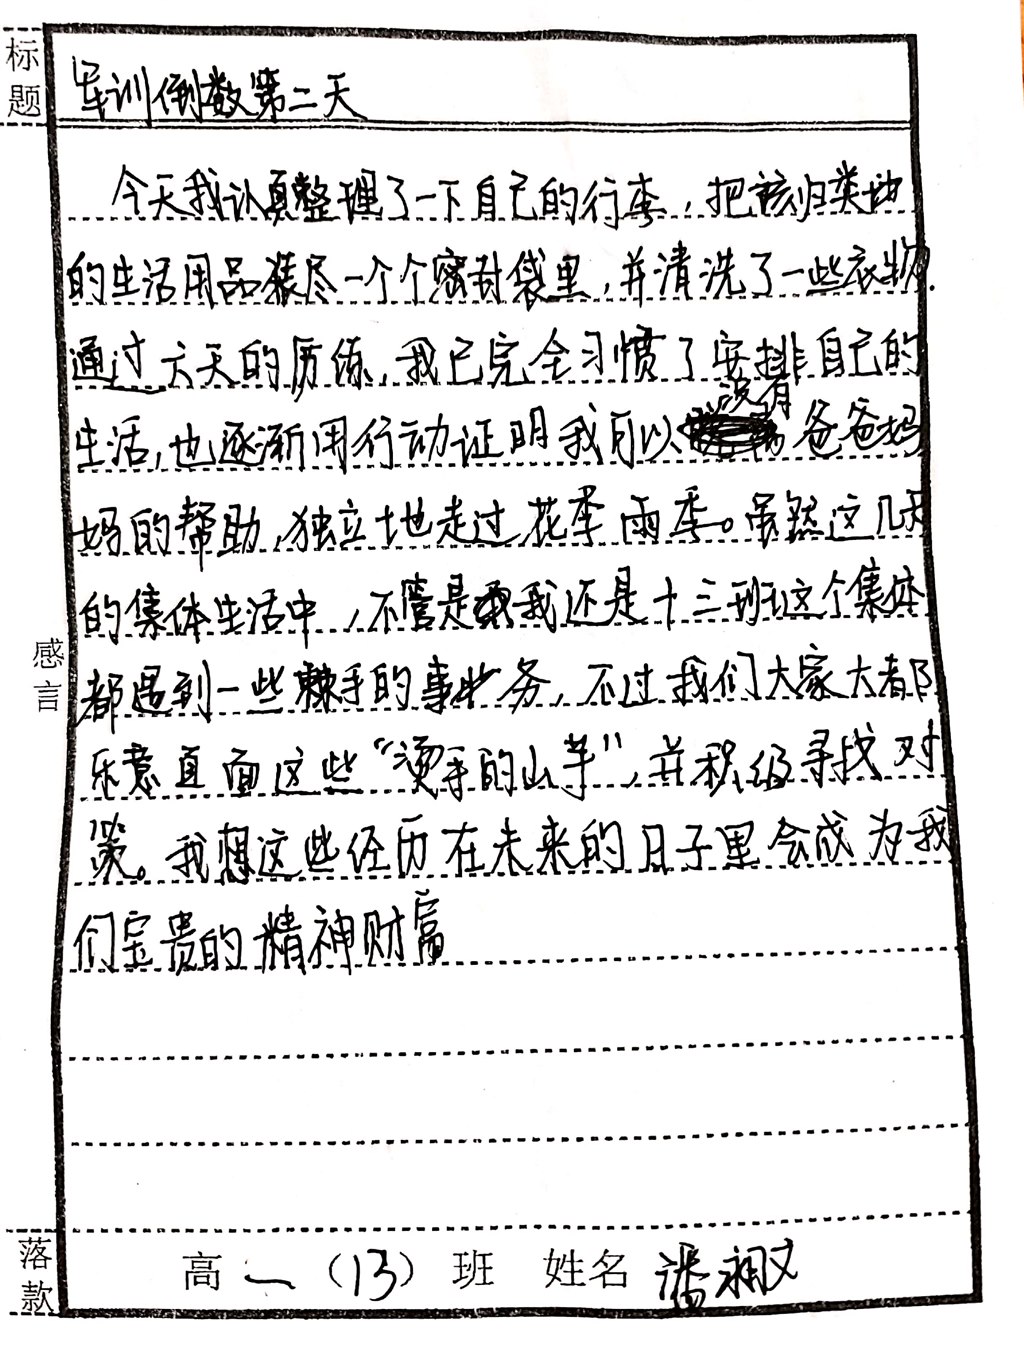 标题
军训倒数第二天
今天我认真整理了一下自己的行李，把该归类地
的生活用品装尽一个个密封袋里，并清洗了一些衣物.
通过六天的历练，我已完全习惯了安排自己的
没有
生活，也逐渐用行动证明我可以爸爸妈
妈的帮助，独立地走过花季雨季。虽然这几天
的集体生活中，不管是我还是十三班这个集体
感言
都遇到一些棘手的事务，不过我们大家大都
乐意直面这些“烫手的山芋”，并积极寻找对
策。我想这些经历在未来的日子里会成为我
们宝贵的精神财富
落款
高一（13）班 姓名 潘翊文